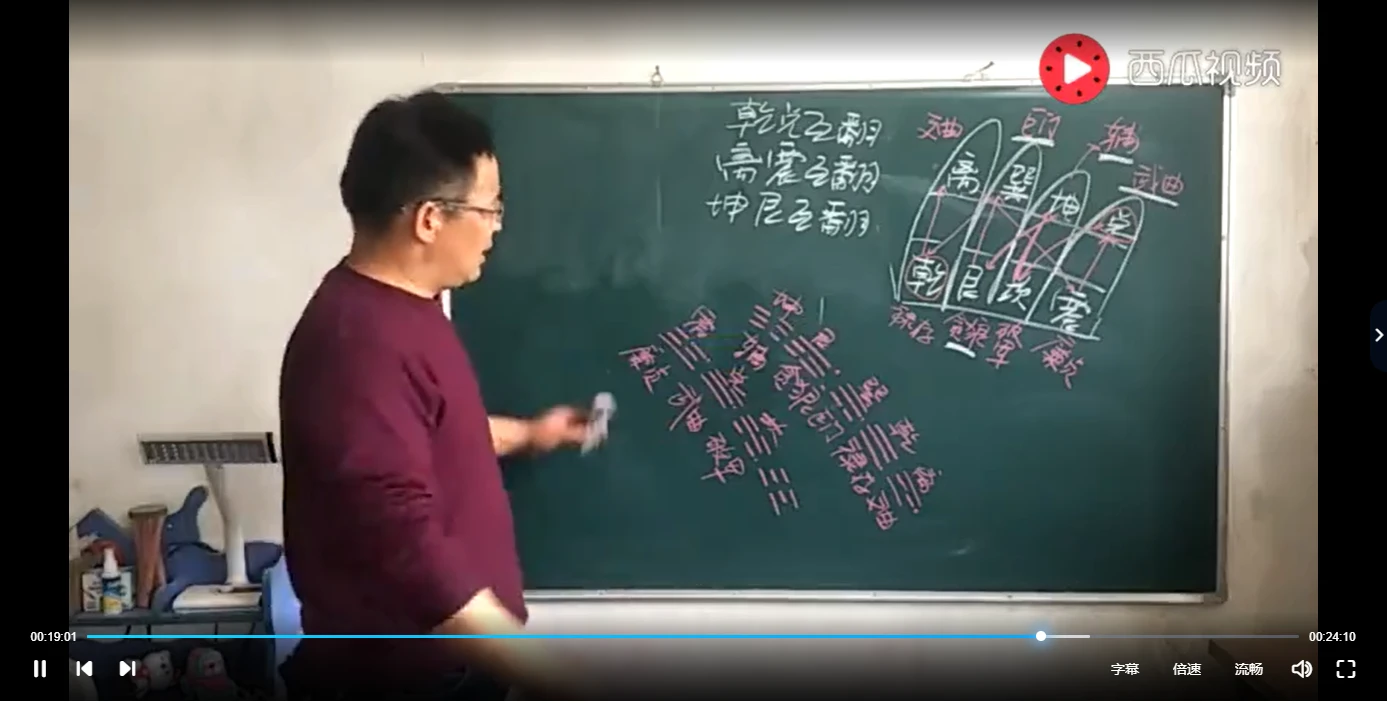 西瓜视频
乾兑互翻
离震互翻
坤艮互翻
文曲
巨门
辅
武曲
离
巽
坤
兑
乾
艮
坎
震
禄存
贪狼
破军
廉贞
震
坤
艮
兑
巽
乾
离
廉贞
武曲
破军
辅
贪狼
巨门
禄存
文曲
00:19:01
00:24:10
字幕
倍速
流畅